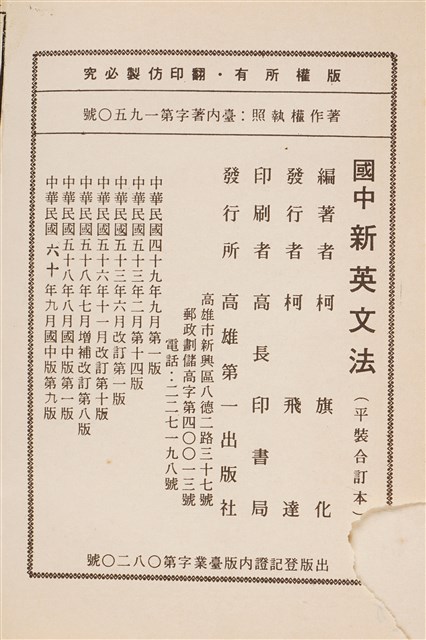 版權所有・翻印仿製必究
著作權執照：臺內著字第一九五〇號
國中新英文法（平裝合訂本）
編著者 柯旗化
發行者 柯飛達
印刷者 高長印書局
發行所 高雄第一出版社
高雄市新興區八德二路三十七號
郵政劃儲高字第四〇〇一三號
電話：二二七一九八號
中華民國四十九年九月第一版
中華民國五十三年二月第十四版
中華民國五十三年六月改訂第一版
中華民國五十六年十一月改訂第十版
中華民國五十八年七月增補改訂第八版
中華民國五十八年八月國中版第一版
中華民國六十年九月國中版第九版
出版登記證內版臺業字第〇八二〇號